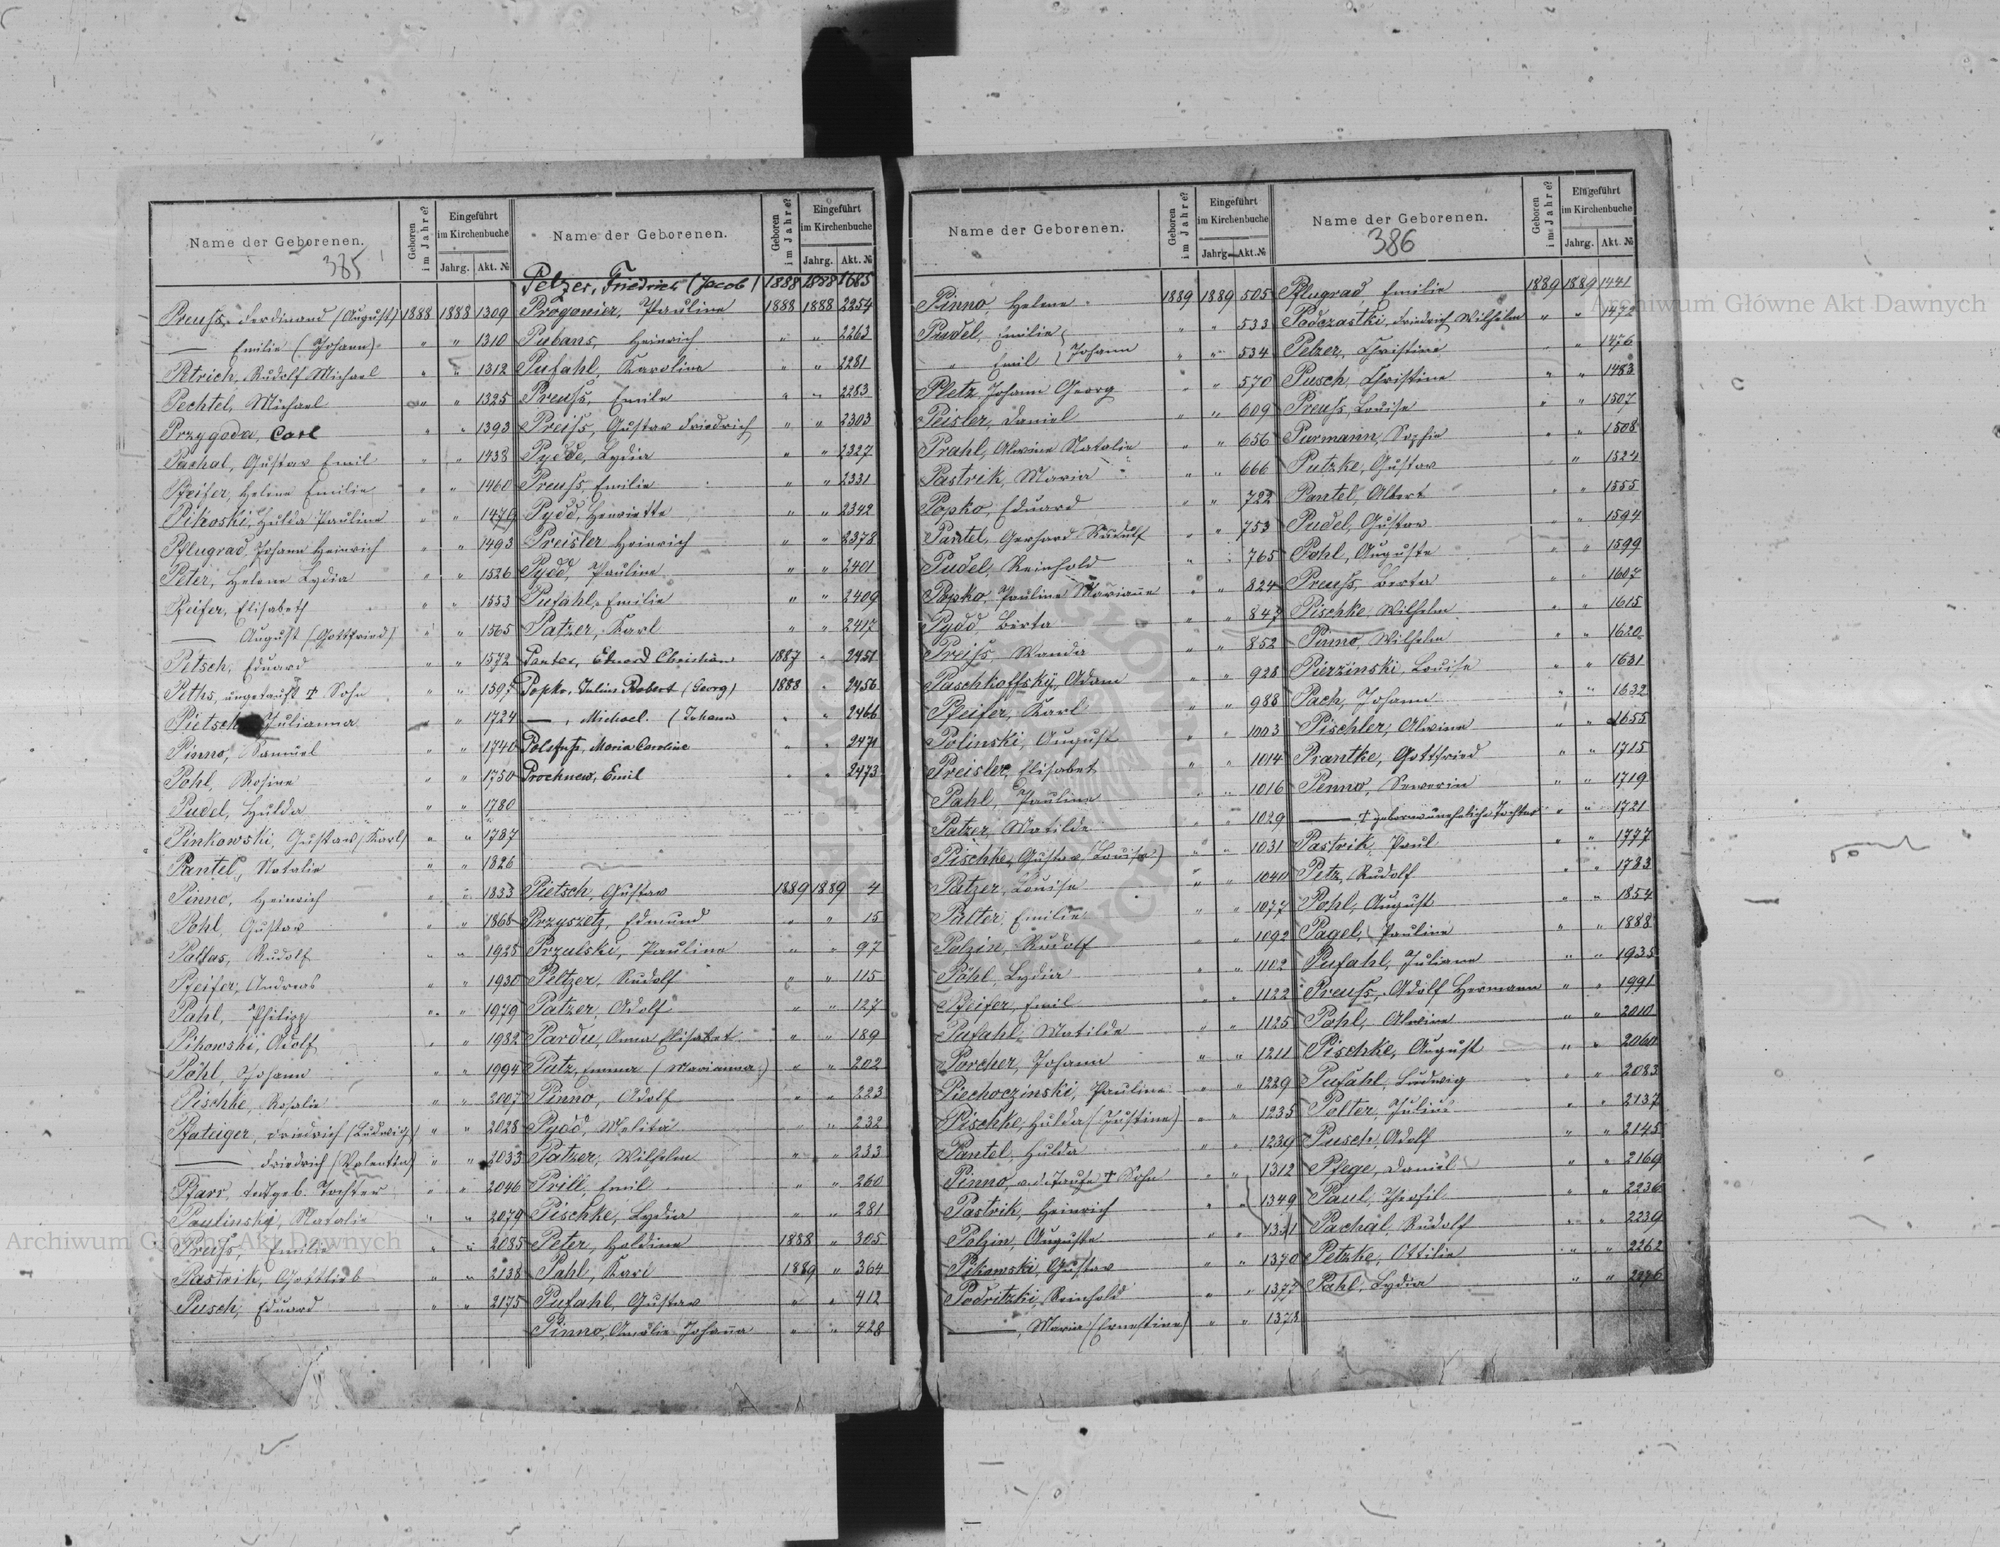 Name der Geborenen.
385
Geboren im Jahre?
Eingeführt im Kirchenbuche
Jahrg. Akt. №
Preuss, Ferdinand (August) 1888 1888 1309
— Emilie (Johann) " " 1310
Petrich, Rudolf Michael " " 1312
Pechtel, Michael " " 1325
Przygoda, Carl " " 1393
Pachal, Gustav Emil " " 1438
Pfeifer, Helene Emilie " " 1460
Pikoski, Hulda Pauline " " 1476
Pflugrad, Johann Heinrich " " 1493
Peter, Helene Lydia " " 1526
Pfeifer, Elisabeth " " 1553
— August (Gottfried) " " 1565
Petsch, Eduard " " 1572
Piths, ungetauft † Sohn " " 1597
Pietsch, Julianna " " 1724
Pinno, Samuel " " 1740
Pohl, Rosine " " 1750
Pudel, Hulda " " 1780
Pinkowski, Gustav (Karl) " " 1787
Pantel, Natalie " " 1826
Pinno, Heinrich " " 1853
Pohl, Gustav " " 1868
Paltas, Rudolf " " 1928
Pfeifer, Andreas " " 1930
Pahl, Philipp " " 1979
Pikowski, Adolf " " 1982
Pohl, Johann " " 1994
Pischke, Rosalie " " 2007
Pfateiger, Friedrich (Ludwig) " " 2028
— Friedrich (Valentin) " " 2033
Pfarr, todtgeb. Tochter " " 2046
Paulinski, Natalie " " 2079
Preuss, Emilie " " 2085
Pastrik, Gottlieb " " 2138
Pusch, Eduard " " 2175
Name der Geborenen.
Geboren im Jahre?
Eingeführt im Kirchenbuche
Jahrg. Akt. №
Pelzer, Friedrich (Jacob) 1888 1888 1685
Progowier, Pauline 1888 1888 2254
Pubans, Heinrich " " 2263
Pufahl, Karolina " " 2281
Preuss, Emile " " 2283
Preiss, Gustav Friedrich " " 2303
Pydde, Lydia " " 2327
Preuss, Emilie " " 2331
Pydd, Henriette " " 2342
Preisler Heinrich " " 2378
Pydd, Pauline " " 2401
Pufahl, Emilie " " 2409
Patzer, Karl " " 2417
Panter, Eduard Christian 1887 " 2451
Popko, Julius Robert (Georg) 1888 " 2456
—, Michael. (Johann " " 2466
Polsfuss, Maria Caroline " " 2471
Prochnow, Emil " " 2473
Pietsch, Gustav 1889 1889 4
Przyszetz, Edmund " " 15
Przulski, Pauline " " 97
Peltzer, Rudolf " " 115
Patzer, Adolf " " 127
Pardu, Anna Elisabet " " 189
Putz, Emma (Marianna) " " 202
Pinno, Adolf " " 223
Pydd, Melita " " 232
Patzer, Wilhelm " " 233
Prill, Emil " " 260
Pischke, Lydia " " 281
Peter, Holdine 1888 " 305
Pahl, Karl 1889 " 364
Pufahl, Gustav " " 412
Pinno, Amalie Johanna " " 428
Name der Geborenen.
Geboren im Jahre?
Eingeführt im Kirchenbuche
Jahrg. Akt. №
Pinno, Helene 1889 1889 505
Pudel, Emilie " " 533
" Emil } Johann " " 534
Pletz, Johann Georg " " 570
Peisler, Daniel " " 609
Prahl, Alwine Natalie " " 656
Pastrik, Maria " " 666
Popko, Eduard " " 722
Pantel, Gerhard Rudolf " " 753
Pudel, Reinhold " " 765
Popko, Pauline Marianne " " 824
Pydd Berta " " 847
Preiss, Wanda " " 852
Paschkoffsky, Adam " " 928
Pfeifer, Karl " " 988
Polinski, August " " 1003
Preisler, Elisabet " " 1014
Pahl, Pauline " " 1016
Patzer, Matilde " " 1029
Pischke, Gustav (Louise) " " 1031
Patzer, Louise " " 1040
Palter, Emilie " " 1077
Polzin, Rudolf " " 1092
Pöhl, Lydia " " 1102
Pfeifer, Emil " " 1122
Pufahl, Matilde " " 1125
Porcher, Johann " " 1211
Piechoczinski, Pauline " " 1229
Pischke, Hulda (Justine) " " 1235
Pantel, Hulda " " 1239
Pinno, v. d. Taufe † Sohn " " 1312
Pastrik, Heinrich " " 1349
Polzin, Auguste " " 1351
Pikowski, Gustav " " 1370
Podritzki, Reinhold " " 1377
—, Maria (Ernestine) " " 1378
Name der Geborenen.
386
Geboren im Jahre?
Eingeführt im Kirchenbuche
Jahrg. Akt. №
Pflugrad, Emilie 1889 1889 1441
Podczastki, Friedrich Wilhelm " " 1472
Pelzer, Christine " " 1476
Pusch, Christine " " 1483
Preuss, Louise " " 1507
Purmann, Sophie " " 1508
Putzke, Gustav " " 1524
Pantel, Albert " " 1555
Pudel, Gustav " " 1594
Pohl, Auguste " " 1599
Preuss, Berta " " 1607
Pischke, Wilhelm " " 1615
Pinno, Wilhelm " " 1620
Pierzinski, Louise " " 1631
Pach, Johann " " 1632
Pischler, Alwine " " 1655
Prantke, Gottfried " " 1715
Penno, Sewerin " " 1719
— † geboren uneheliche Tochter " " 1721
Pastrik, Paul " " 1777
Petz, Rudolf " " 1783
Pohl, August " " 1854
Pagel, Pauline " " 1888
Pufahl, Juliane " " 1935
Preuss, Adolf Hermann " " 1991
Pohl, Alwine " " 2010
Pischke, August " " 2060
Pufahl, Ludwig " " 2083
Polter, Julius " " 2137
Pusch, Adolf " " 2145
Pfege, Daniel " " 2169
Paul, Theofil " " 2236
Pachal, Rudolf " " 2239
Petzke, Ottilie " " 2262
Pahl, Lydia " " 2276
Archiwum Główne Akt Dawnych
Archiwum Główne Akt Dawnych